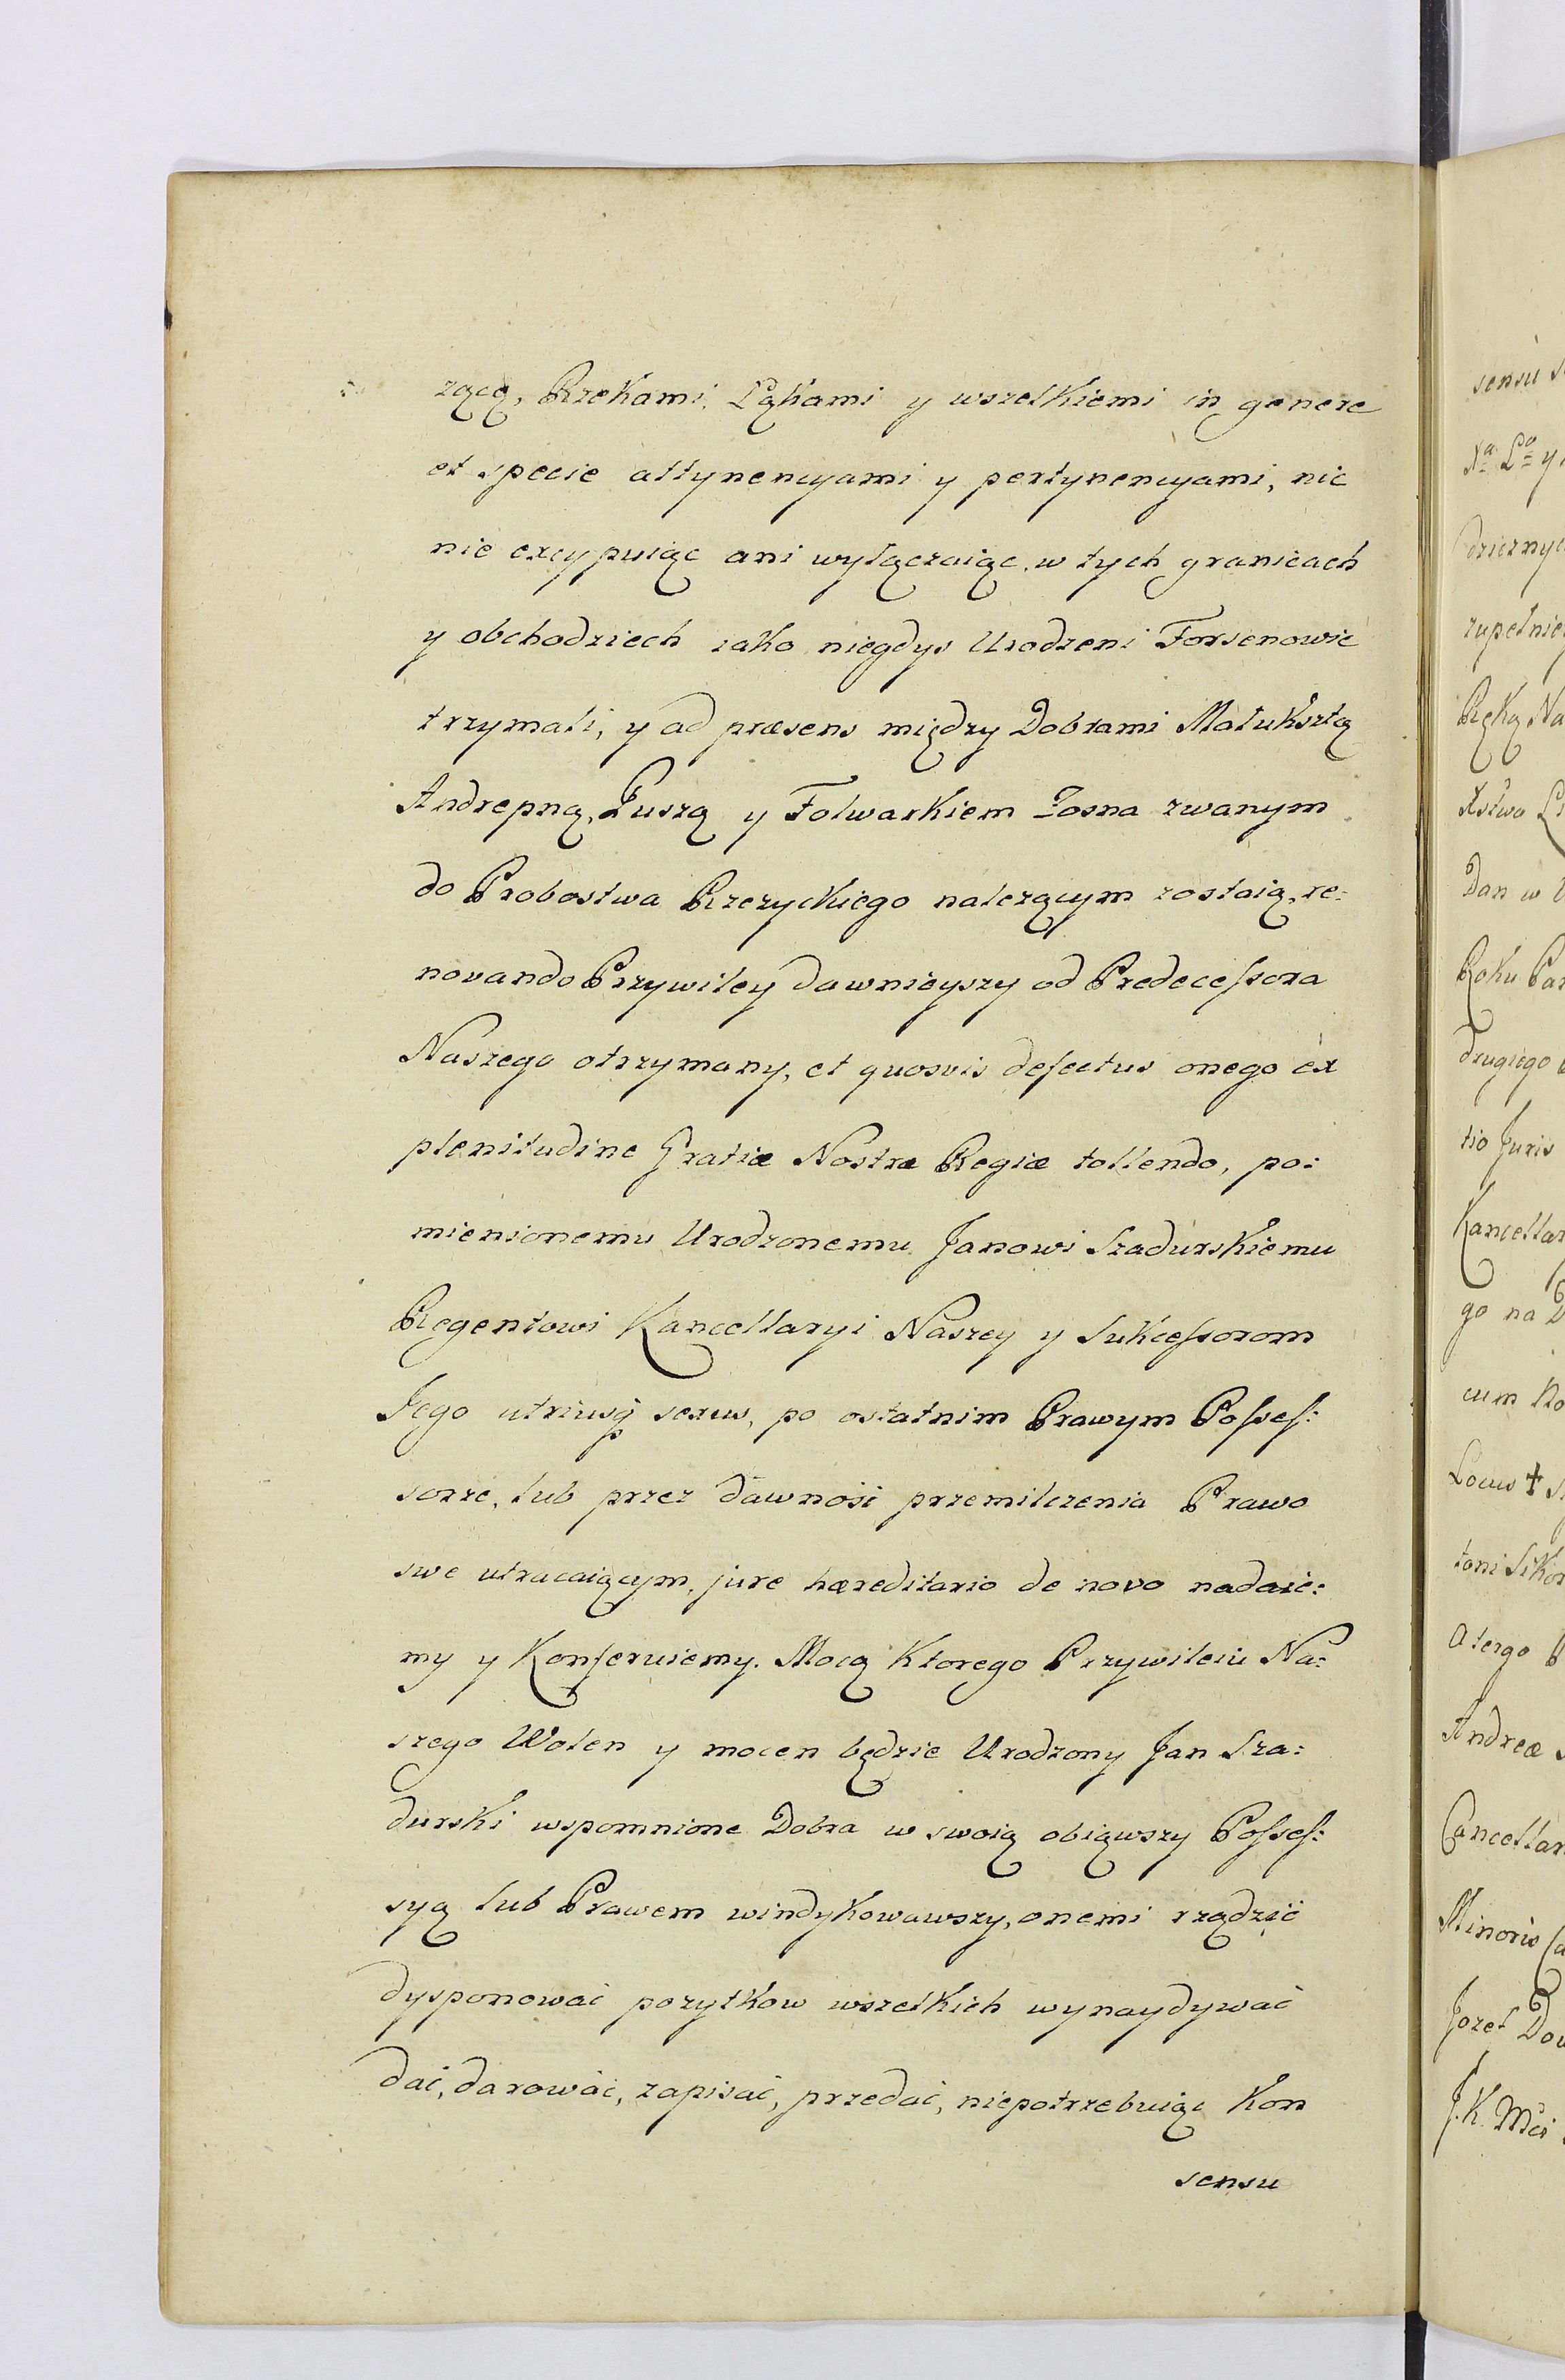 żącą, Rzekami, Łąkami y wszelkiemi in genere
et specie attynencyami y pertynencyami, nic
nie excypuiąc ani wyłączaiąc, w tych granicach
y obchodziech iako niegdys Urodzeni Forsenowie
trzymali, y ad præsens między Dobrami Małuksztą
Andrepną, Puszą y Folwarkiem Zosna zwanym
do Probostwa Rzezyckiego należącym zostaią, re:
novando Przywiley dawnieyszy od Predecessora
Naszego otrzymany, et quosvis defectus onego ex
plenitudine Gratiæ Nostræ Regiæ tollendo, po:
mienionemu Urodzonemu Janowi Szadurskiemu
Regentowi Kancellaryi Naszey y Sukcessorom
Jego utriusq sexus, po ostatnim Prawym Posses:
sorze, lub przez dawność przemilczenia Prawo
swe utracaiącym, jure hæreditario de novo nadaie:
my y Konferuiemy. Mocą Ktorego Przywileiu Na:
szego Wolen y mocen będzie Urodzony Jan Sza:
durski wspomnione Dobra w swoią obiąwszy Posses:
syą lub Prawem windykowawszy, onemi rządzić
dysponować pożytkow wszelkich wynaydywać
dać, darować, zapisać, przedać, niepotrzebuiąc Kon
sensu
sensu
Xa Lo y
dzicznych
zupełnie
Ręką Na
Xstwa
Dan w
Roku Pań
drugiego
tio Juris
Kancellar
go na
cum No
Locus +
toni Sikor
A tergo
Andreæ
Cancellar
Minoris
Jozef Dow
J.K. Mci